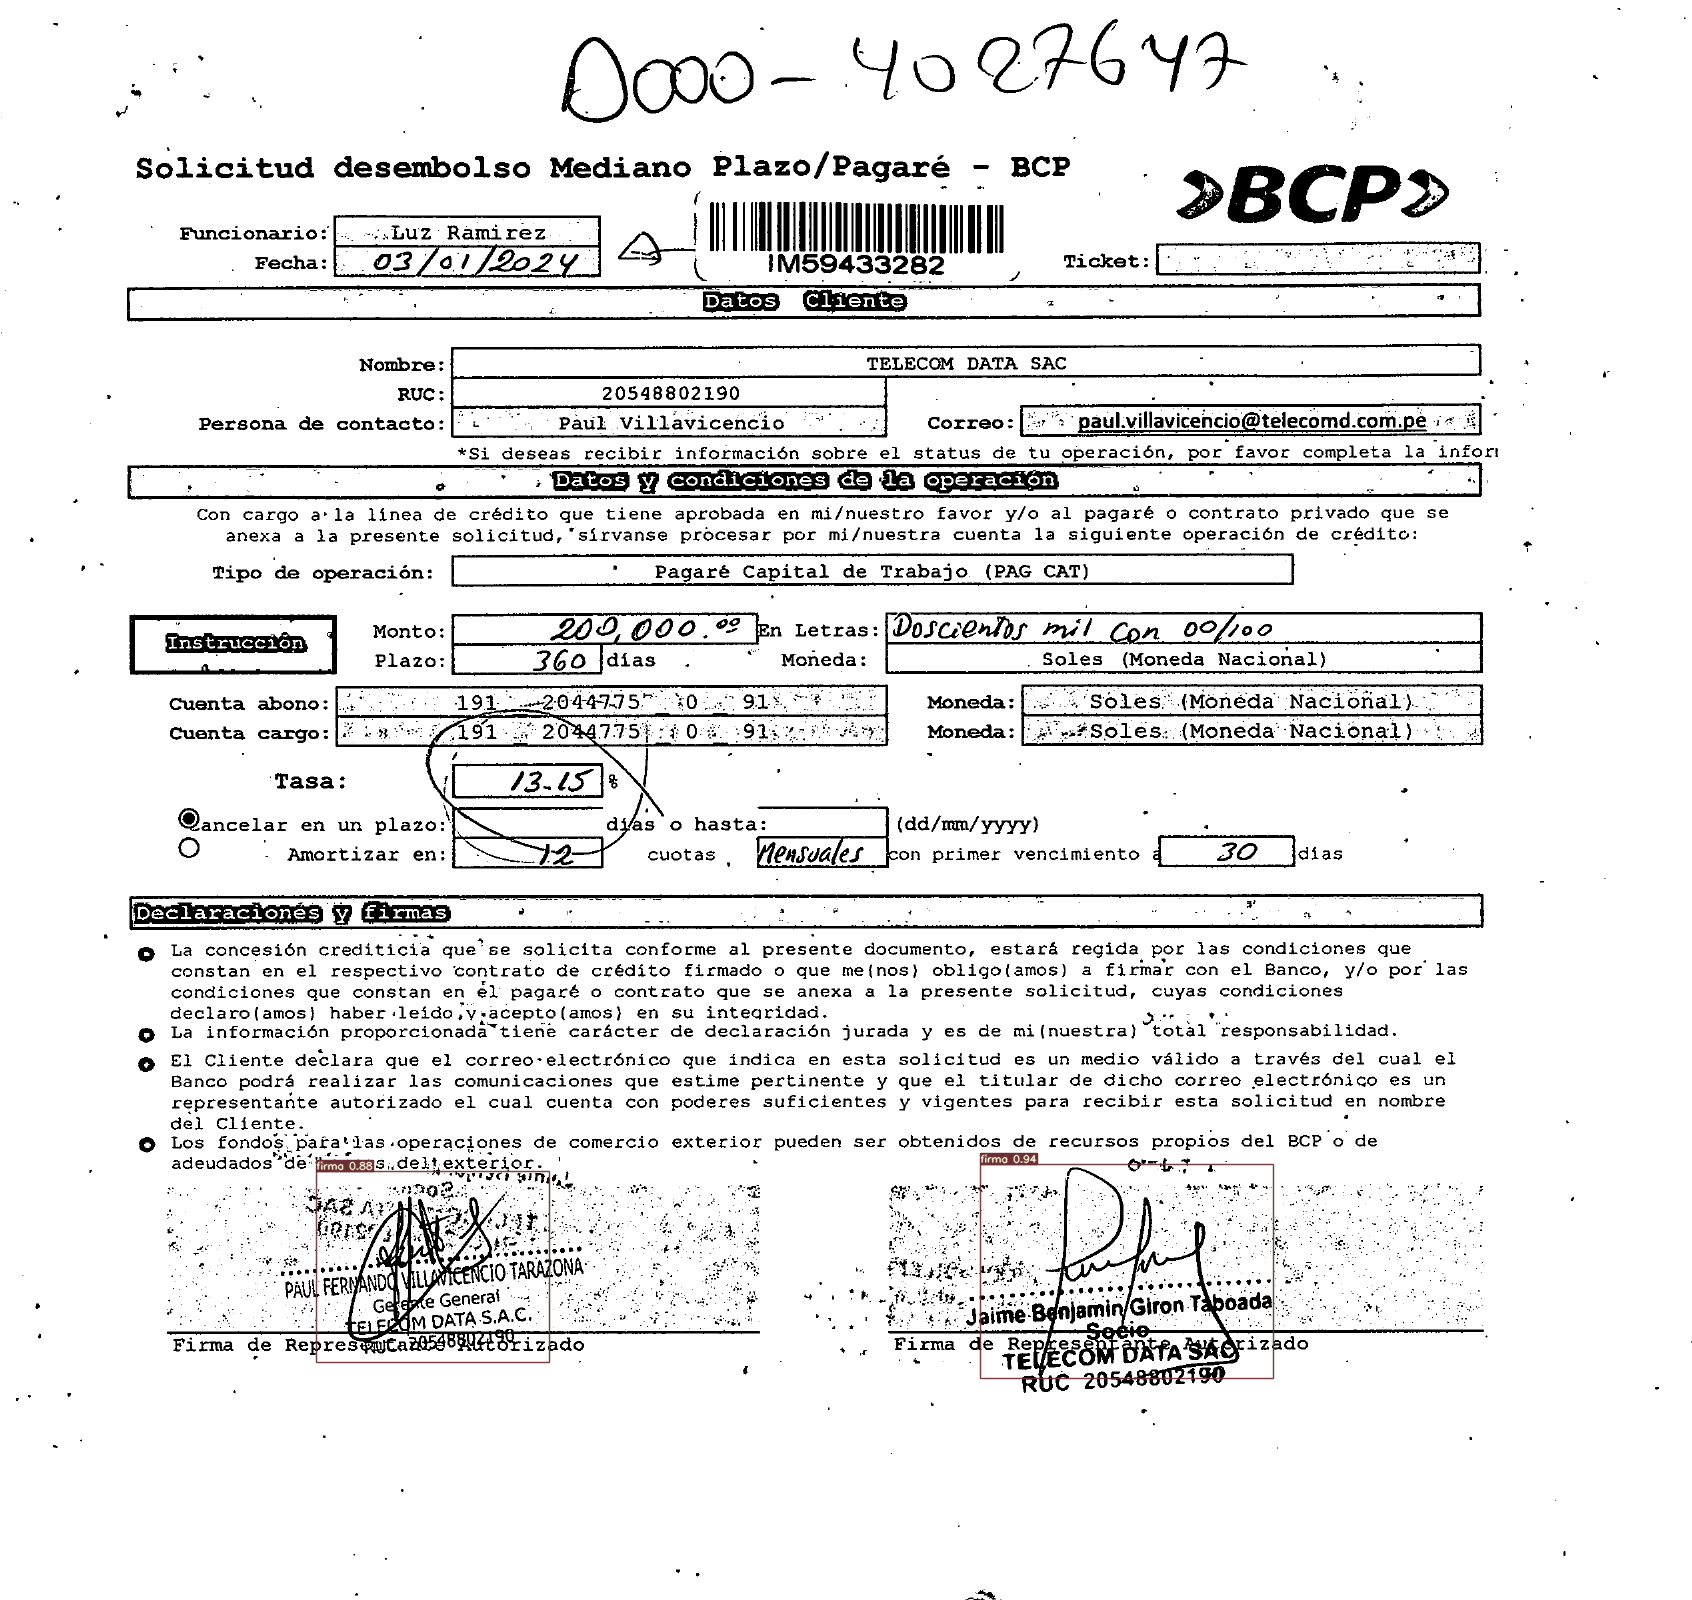 D000-4027647
Solicitud desembolso Mediano Plazo/Pagaré - BCP
»BCP»
Funcionario: Luz Ramirez
Fecha: 03/01/2024
IM59433282
Ticket:
Datos Cliente
Nombre: TELECOM DATA SAC
RUC: 20548802190
Persona de contacto: Paul Villavicencio Correo: paul.villavicencio@telecomd.com.pe
*Si deseas recibir información sobre el status de tu operación, por favor completa la infor
Datos y condiciones de la operación
Con cargo a la línea de crédito que tiene aprobada en mi/nuestro favor y/o al pagaré o contrato privado que se
anexa a la presente solicitud, sírvanse procesar por mi/nuestra cuenta la siguiente operación de crédito:
Tipo de operación: Pagaré Capital de Trabajo (PAG CAT)
Instrucción
Monto: 200,000.00 En Letras: Doscientos mil con 00/100
Plazo: 360 días Moneda: Soles (Moneda Nacional)
Cuenta abono: 191 2044775 0 91 Moneda: Soles (Moneda Nacional)
Cuenta cargo: 191 2044775 0 91 Moneda: Soles (Moneda Nacional)
Tasa: 13.15 %
Cancelar en un plazo: días o hasta: (dd/mm/yyyy)
Amortizar en: 12 cuotas Mensuales con primer vencimiento a 30 días
Declaraciones y firmas
La concesión crediticia que se solicita conforme al presente documento, estará regida por las condiciones que
constan en el respectivo contrato de crédito firmado o que me(nos) obligo(amos) a firmar con el Banco, y/o por las
condiciones que constan en el pagaré o contrato que se anexa a la presente solicitud, cuyas condiciones
declaro(amos) haber leído y acepto(amos) en su integridad.
La información proporcionada tiene carácter de declaración jurada y es de mi(nuestra) total responsabilidad.
El Cliente declara que el correo electrónico que indica en esta solicitud es un medio válido a través del cual el
Banco podrá realizar las comunicaciones que estime pertinente y que el titular de dicho correo electrónico es un
representante autorizado el cual cuenta con poderes suficientes y vigentes para recibir esta solicitud en nombre
del Cliente.
Los fondos para las operaciones de comercio exterior pueden ser obtenidos de recursos propios del BCP o de
adeudados de del exterior.
firma 0.88
firma 0.94
PAUL FERNANDO VILLAVICENCIO TARAZONA
Gerente General
TELECOM DATA S.A.C.
RUC 20548802190
Firma de Representante Autorizado
Jaime Benjamin Giron Taboada
Socio
Firma de Representante Autorizado
TELECOM DATA SAC
RUC 20548802190